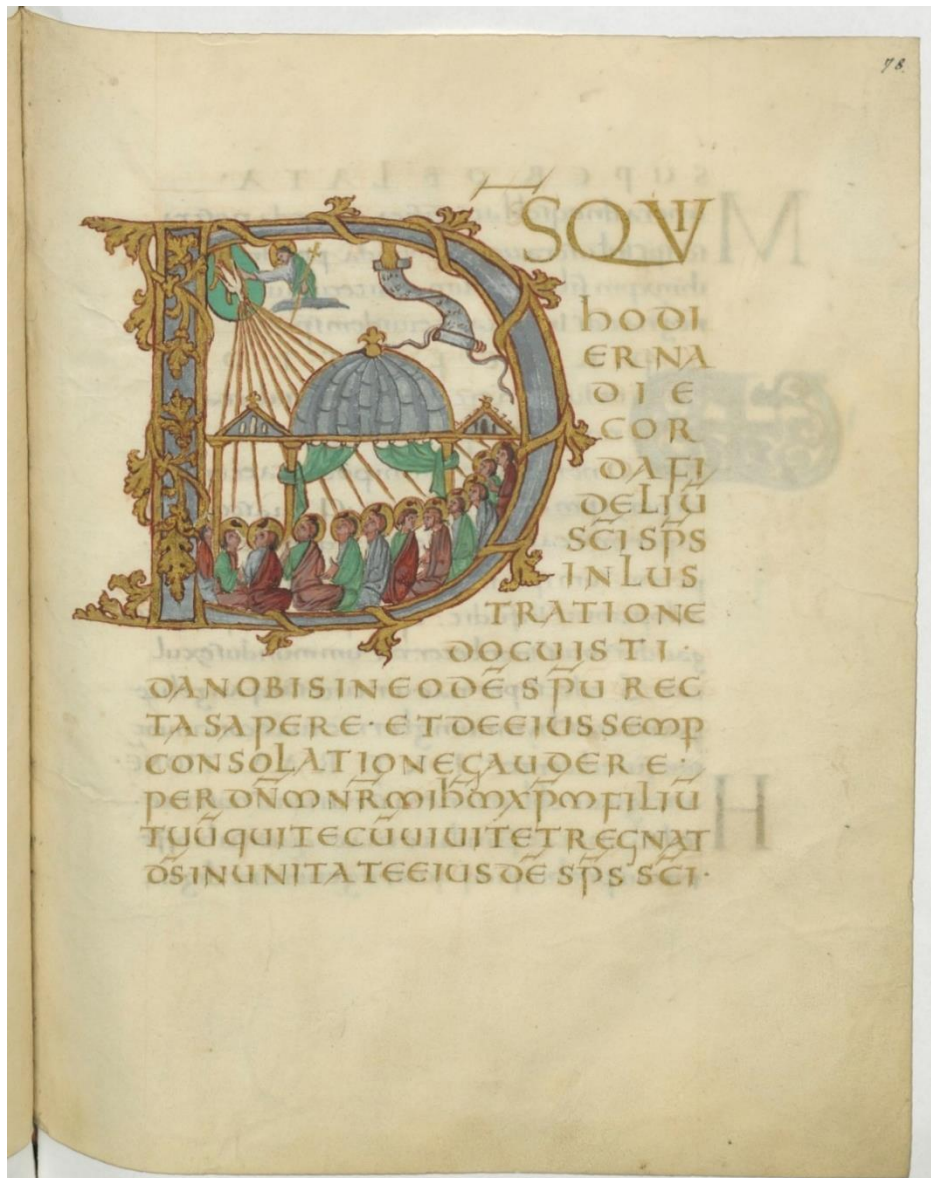 78.
DS̅ QVI
hODI
ERNA
DIE
COR
DAFI
DELIŪ
SC̅I SP̅S
INLUS
TRATIONE
DOCUISTI·
DANOBISINEODĒ SP̅U REC
TASAPERE· ETDEEIUSSEMP̅
CONSOLATIONEGAUDERE·
PER DN̅M NR̅M IHM̅ XP̅M FILIŪ
TUŪ QUITECŪ UIUIT ET REGNAT
DS̅ INUNITATEEIUSDĒ SP̅S SC̅I·